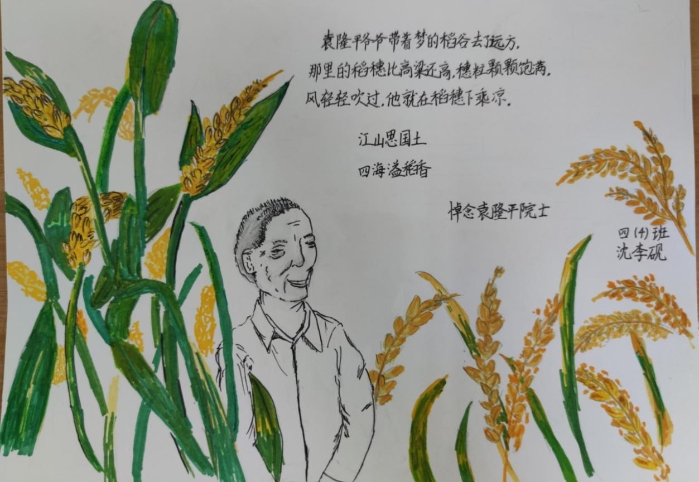 袁隆平爷爷带着梦的稻谷去了远方，
那里的稻穗比高粱还高，穗粒颗颗饱满，
风轻轻吹过，他就在稻穗下乘凉。
江山思国土
四海溢稻香
悼念袁隆平院士
四(4)班
沈李砚